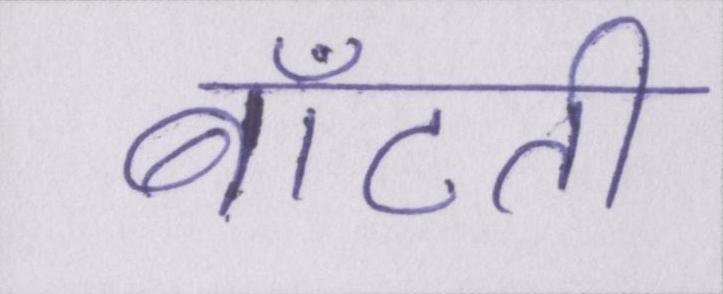 बाँटती